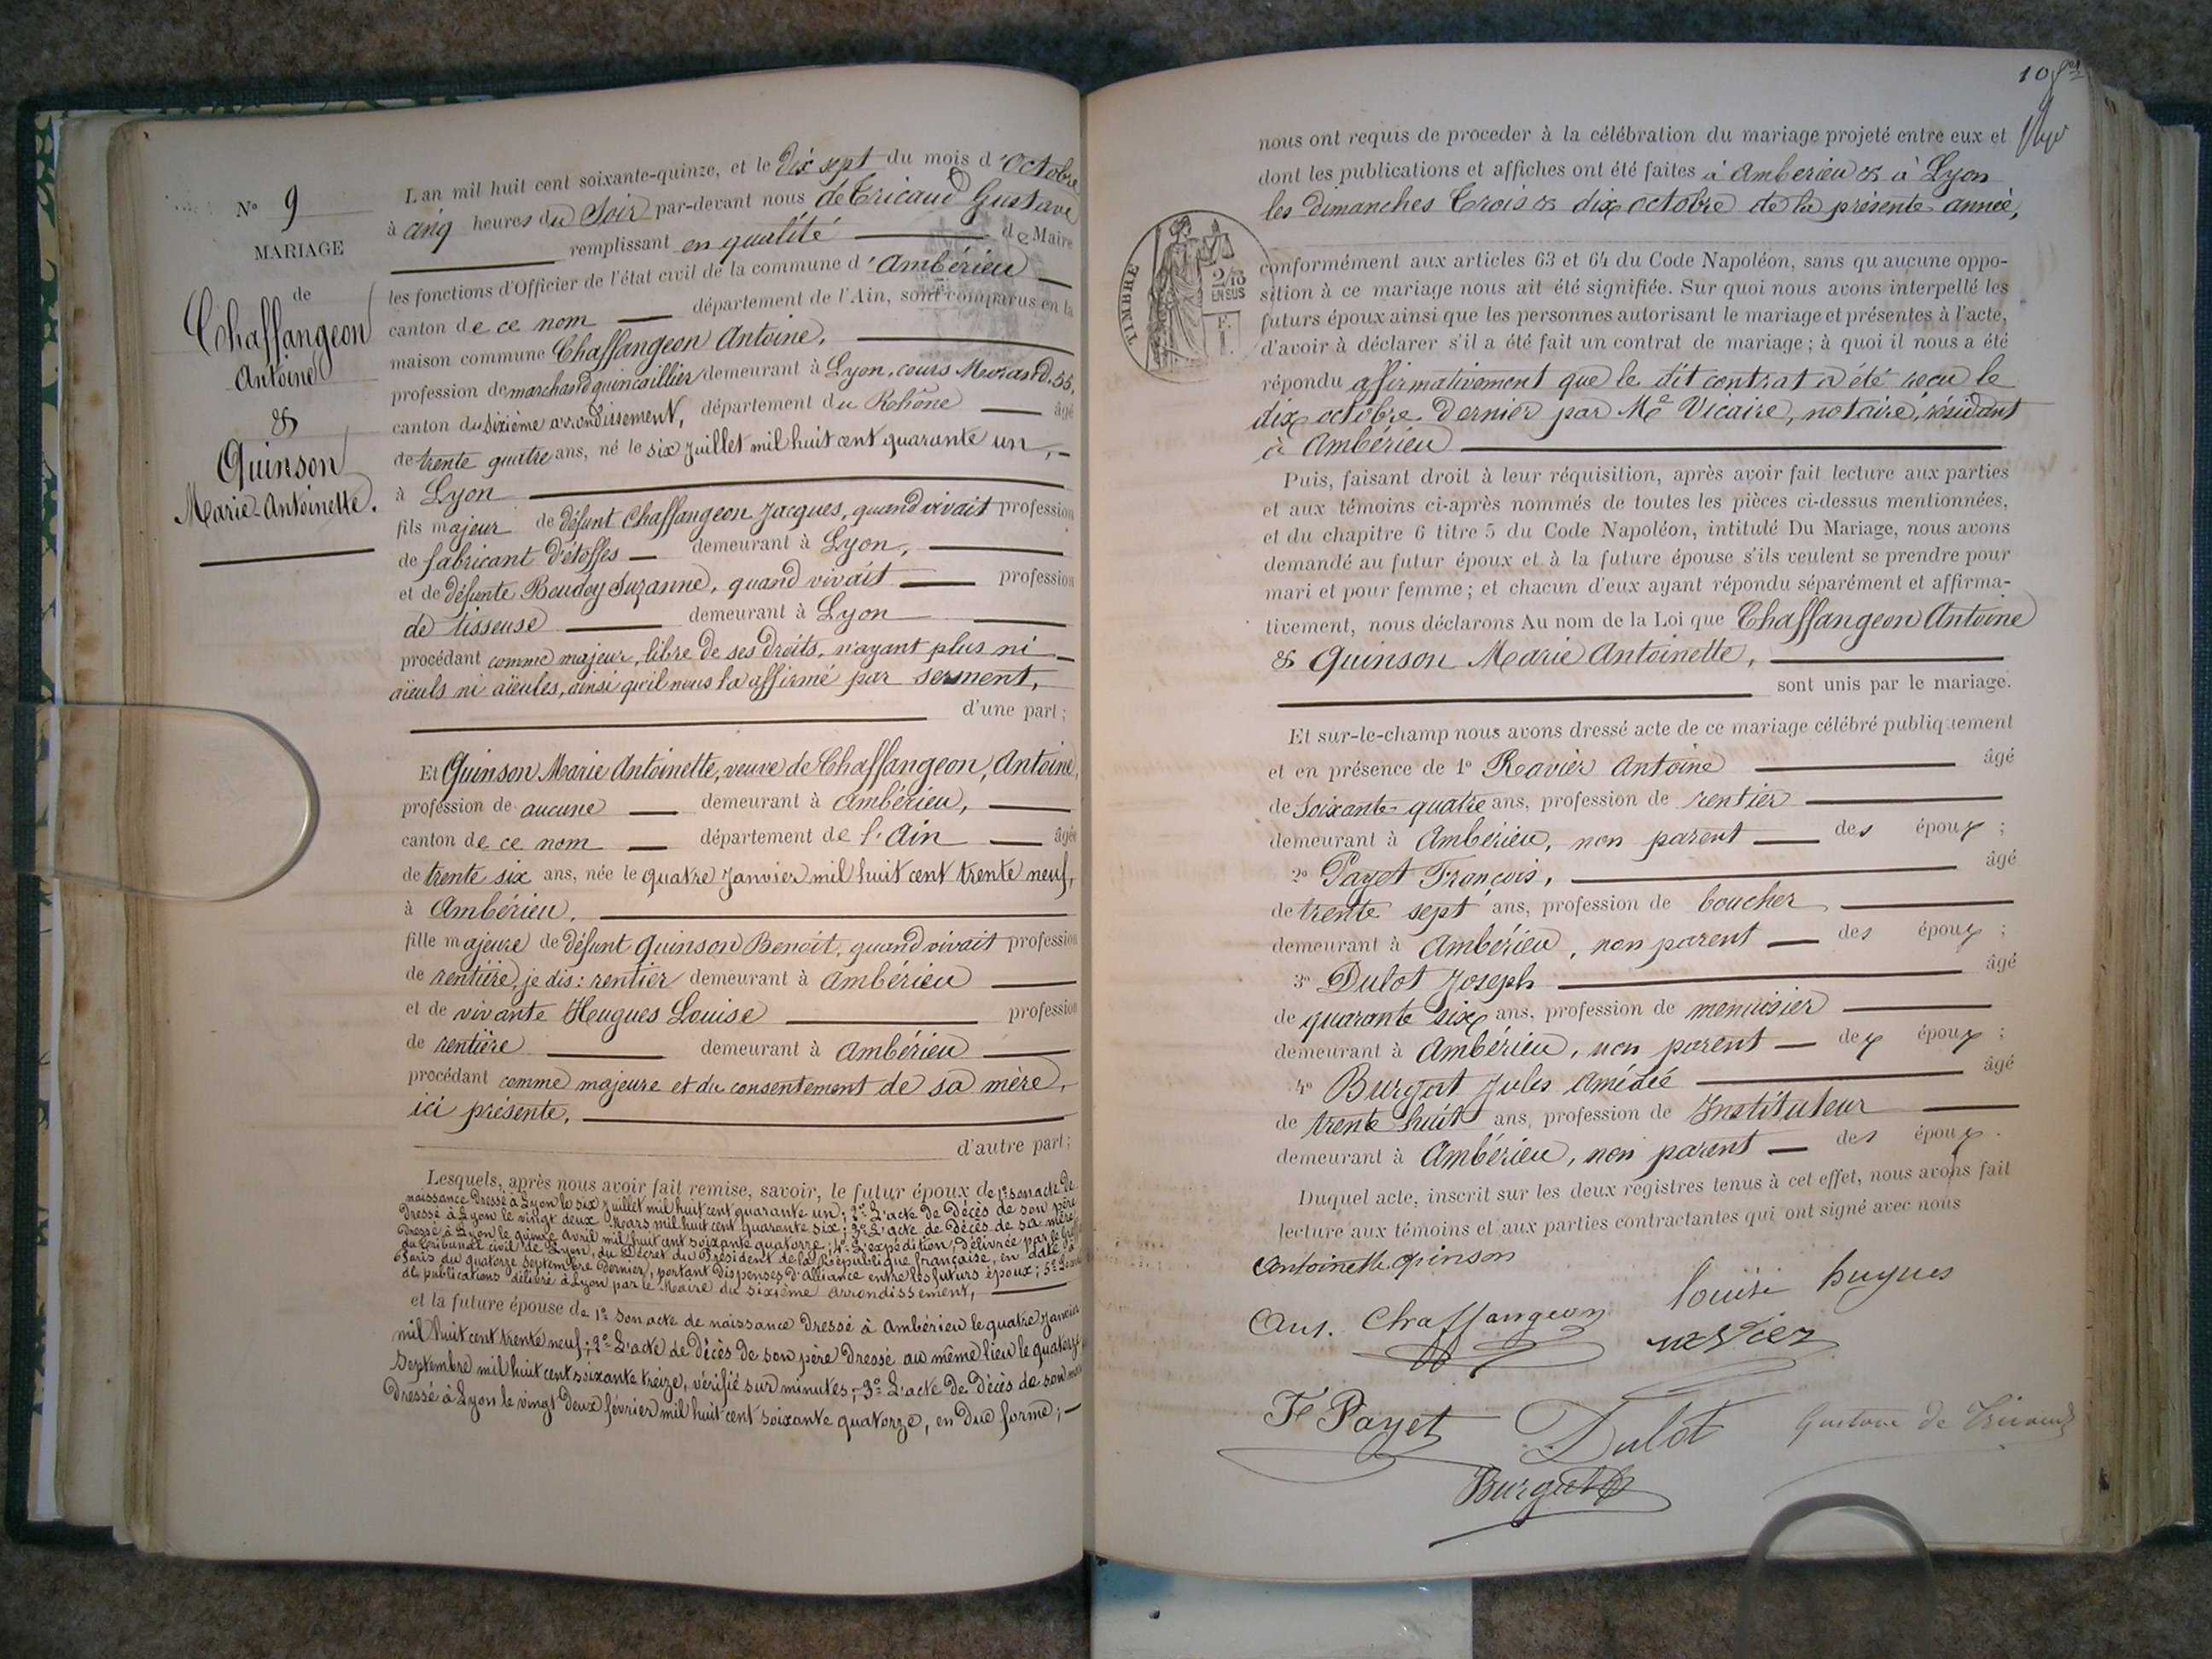 N° 9
MARIAGE
de
Chaffangeon
Antoine
&
Quinson
Marie-Antoinette.
L'an mil huit cent soixante-quinze, et le Dix sept du mois d'Octobre
à cinq heures du Soir par-devant nous de Tricaud Gustave
remplissant en qualité de Maire
les fonctions d'Officier de l'état civil de la commune d'Ambérieu
canton de ce nom département de l'Ain, sont comparus en la
maison commune Chaffangeon Antoine,
profession de marchand quincaillier demeurant à Lyon, cours Morand, 55,
canton du sixième arrondissement, département du Rhône âgé
de trente quatre ans, né le six Juillet mil huit cent quarante un,
à Lyon
fils majeur de défunt Chaffangeon Jacques, quand vivait profession
de fabricant d'étoffes demeurant à Lyon,
et de défunte Boudoy Suzanne, quand vivait profession
de tisseuse demeurant à Lyon
procédant comme majeur, libre de ses droits, n'ayant plus ni
aïeuls ni aïeules, ainsi qu'il nous l'a affirmé par serment,
d'une part;
Et Quinson Marie Antoinette, veuve de Chaffangeon, Antoine,
profession de aucune demeurant à Ambérieu,
canton de ce nom département de l'Ain âgée
de trente six ans, née le quatre Janvier mil huit cent trente neuf,
à Ambérieu,
fille majeure de défunt Quinson Benoît, quand vivait profession
de rentière, je dis: rentier demeurant à Ambérieu
et de vivante Hugues Louise profession
de rentière demeurant à Ambérieu
procédant comme majeure et du consentement de sa mère,
ici présente,
d'autre part;
Lesquels, après nous avoir fait remise, savoir, le futur époux de 1° son acte de
naissance dressé à Lyon le six Juillet mil huit cent quarante un; 2° L'acte de Décès de son père
dressé à Lyon le vingt deux Mars mil huit cent quarante six; 3° L'acte de Décès de sa mère
dressé à Lyon le quinze Avril mil huit cent soixante quatorze; 4° L'expédition, délivrée par le
du tribunal civil de Lyon, du Décret du Président de la République française, en date à
Paris du quatorze Septembre Dernier, portant dispenses d'Alliance entre les futurs époux; 5°
de publications délivré à Lyon par le Maire du sixième arrondissement,
et la future épouse de 1° son acte de naissance dressé à Ambérieu le quatre Janvier
mil huit cent trente neuf; 2° L'acte de décès de son père dressé au même lieu le quatorze
Septembre mil huit cent soixante treize, vérifié sur minutes; 3° L'acte de Décès de son mari
dressé à Lyon le vingt deux février mil huit cent soixante quatorze, en due forme;
10
nous ont requis de proceder à la célébration du mariage projeté entre eux et
dont les publications et affiches ont été faites à Ambérieu & à Lyon
les dimanches Trois & dix octobre de la présente année,
TIMBRE
2/10
EN SUS
conformément aux articles 63 et 64 du Code Napoléon, sans qu'aucune oppo-
sition à ce mariage nous ait été signifiée. Sur quoi nous avons interpellé les
futurs époux ainsi que les personnes autorisant le mariage et présentes à l'acte,
d'avoir à déclarer s'il a été fait un contrat de mariage; à quoi il nous a été
répondu affirmativement que le dit contrat a été reçu le
dix octobre Dernier par Me Vicaire, notaire, résidant
à Ambérieu
Puis, faisant droit à leur réquisition, après avoir fait lecture aux parties
et aux témoins ci-après nommés de toutes les pièces ci-dessus mentionnées,
et du chapitre 6 titre 5 du Code Napoléon, intitulé Du Mariage, nous avons
demandé au futur époux et à la future épouse s'ils veulent se prendre pour
mari et pour femme; et chacun d'eux ayant répondu séparément et affirma-
tivement, nous déclarons Au nom de la Loi que Chaffangeon Antoine
& Quinson Marie Antoinette,
sont unis par le mariage.
Et sur-le-champ nous avons dressé acte de ce mariage célébré publiquement
et en présence de 1° Ravier Antoine âgé
de Soixante-quatre ans, profession de rentier
demeurant à Ambérieu, non parent des époux;
2° Payet François, âgé
de trente sept ans, profession de boucher
demeurant à Ambérieu, non parent des époux;
3° Dulot Joseph âgé
de quarante six ans, profession de menuisier
demeurant à Ambérieu, non parent des époux;
4° Burgat Jules Amédée âgé
de trente huit ans, profession de Instituteur
demeurant à Ambérieu, non parent des époux.
Duquel acte, inscrit sur les deux registres tenus à cet effet, nous avons fait
lecture aux témoins et aux parties contractantes qui ont signé avec nous
Antoinette quinson
louise hugues
Ant. Chaffangeon
ravier
Fs Payet
Dulot
Gustave de Tricaud
Burgat